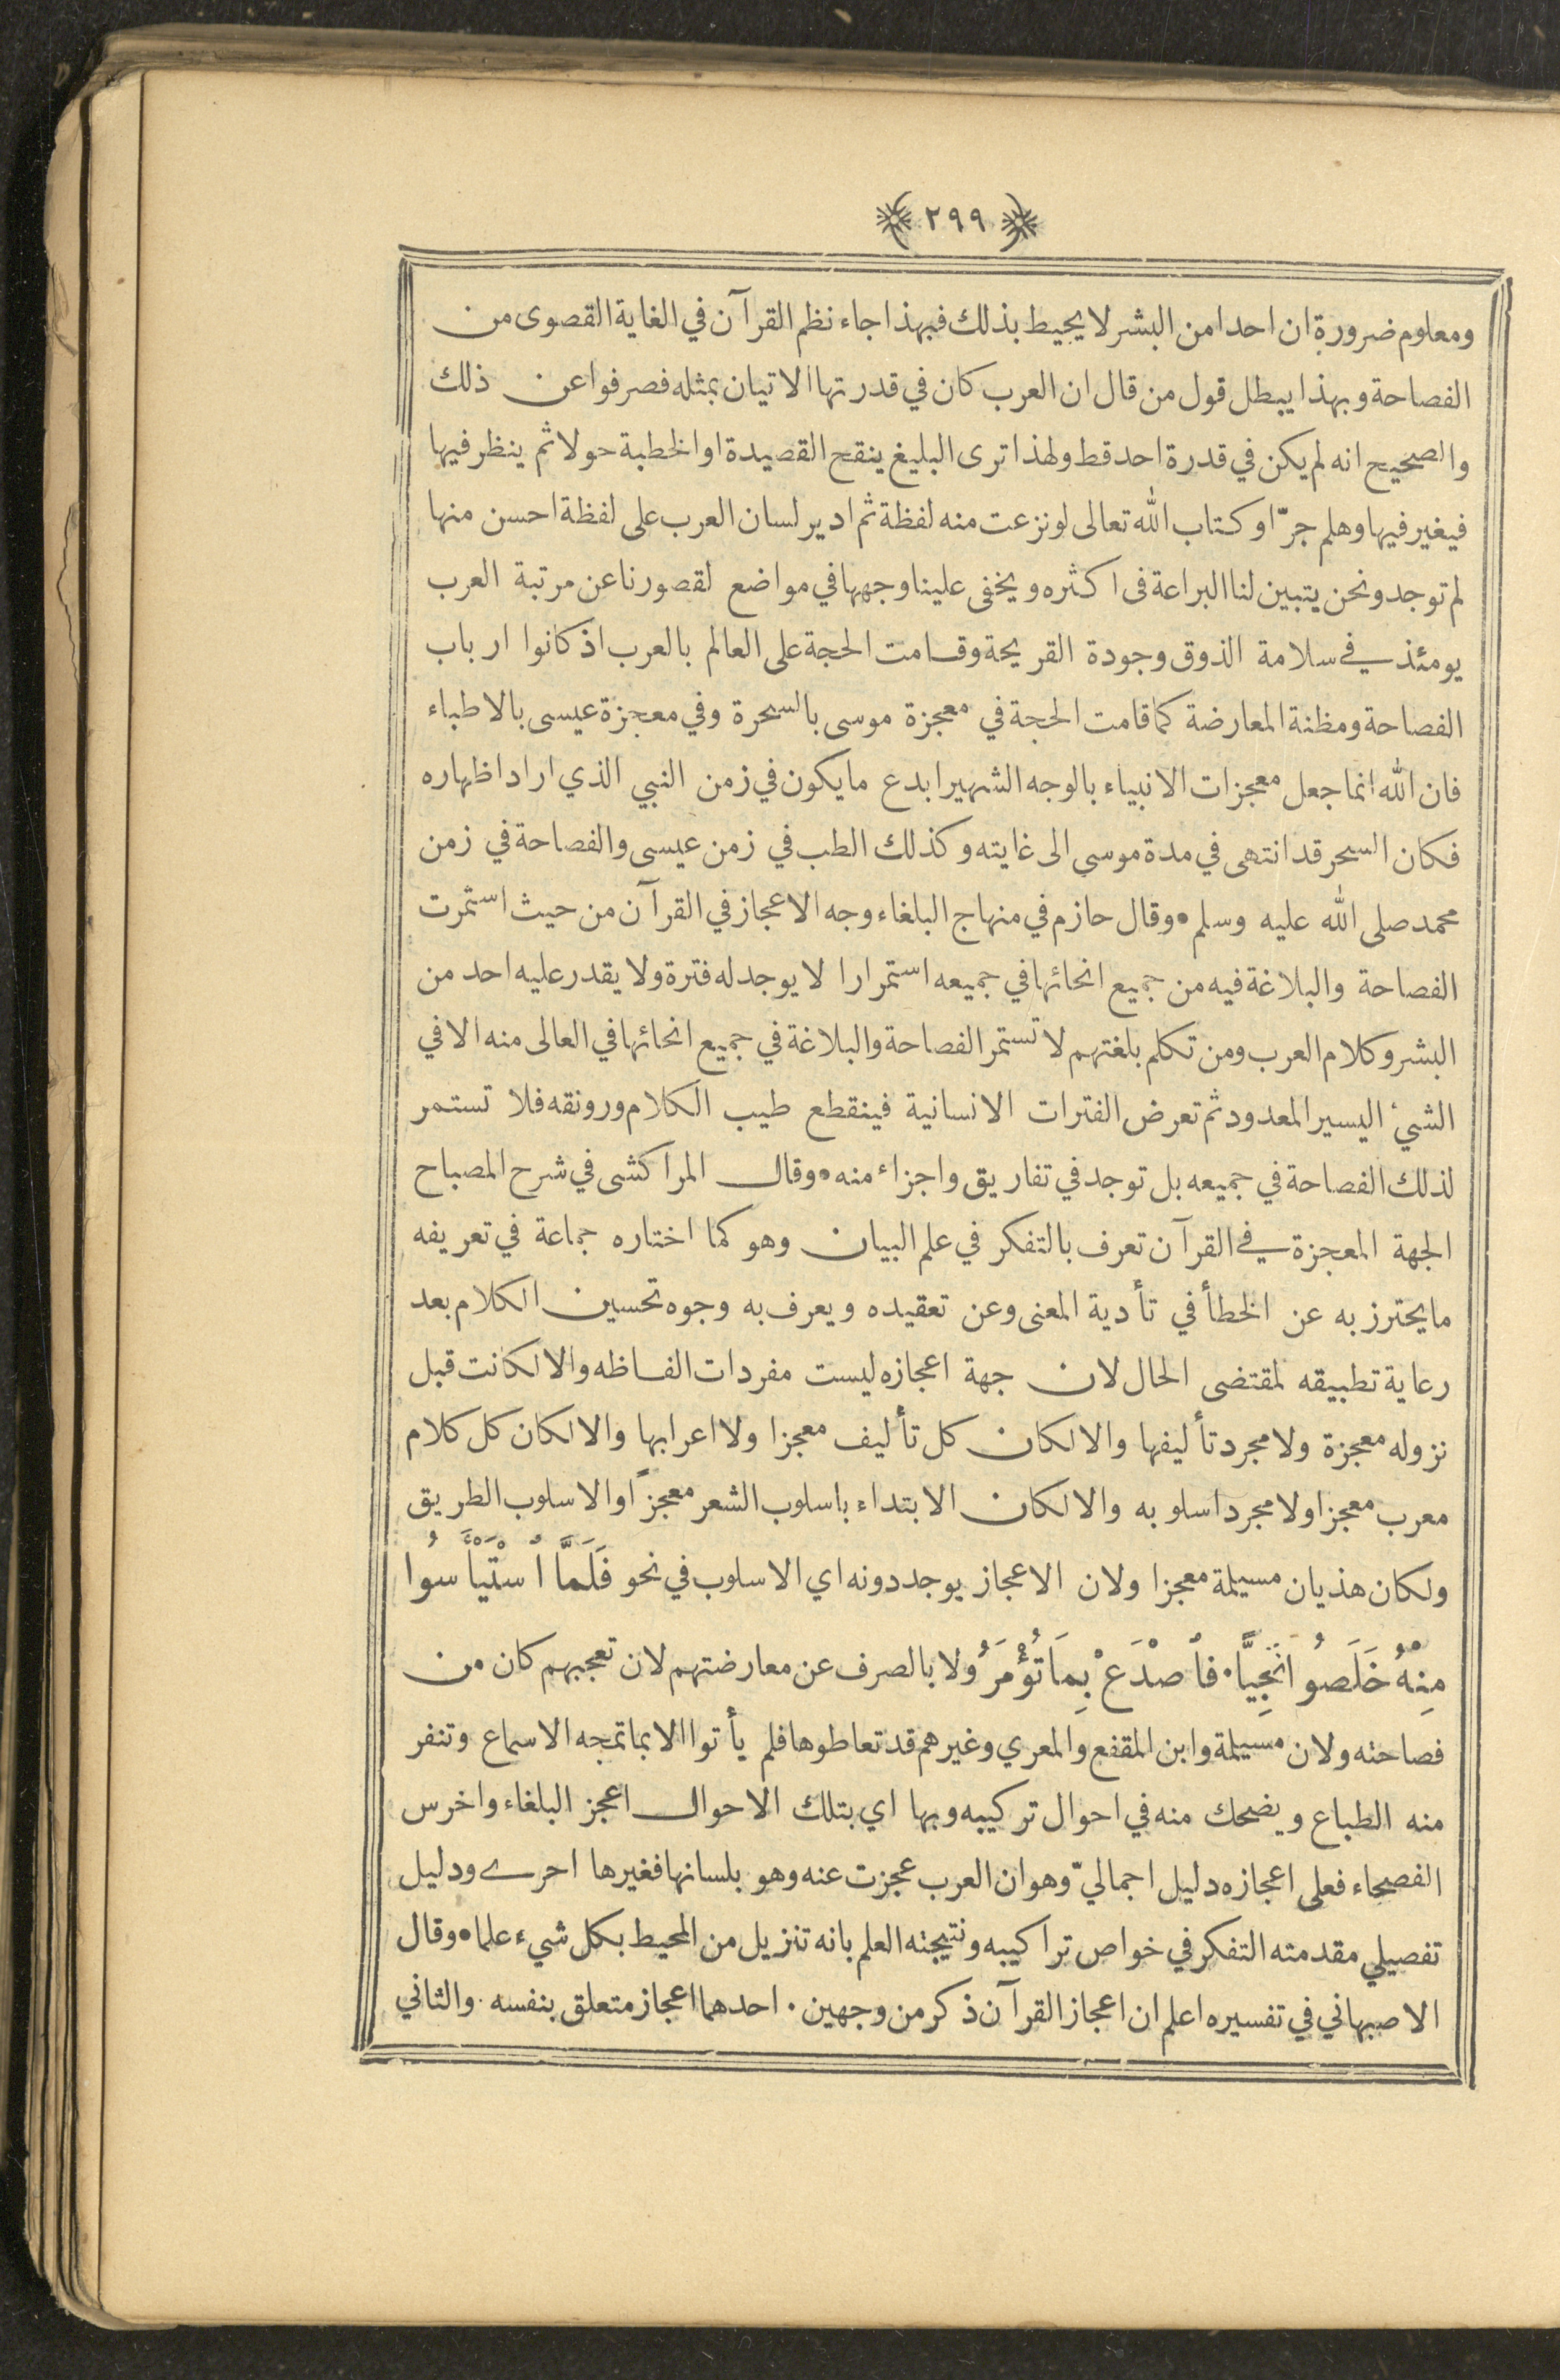 ٢٩٩
ومعلوم ضرورة ان احدا من البشر لا يحيط بذلك فبهذا جاء نظم القرآن في الغاية القصوى من
الفصاحة وبهذا يبطل قول من قال ان العرب كان في قدرتها الاتيان بمثله فصرفوا عن ذلك
والصحيح انه لم يكن في قدرة احد قط ولهذا ترى البليغ ينقح القصيدة او الخطبة حولا ثم ينظر فيها
فيغير فيها وهلم جرّا وكتاب الله تعالى لو نزعت منه لفظة ثم ادير لسان العرب على لفظة احسن منها
لم توجد ونحن يتبين لنا البراعة فى اكثره ويخفى علينا وجهها في مواضع لقصورنا عن مرتبة العرب
يومئذ في سلامة الذوق وجودة القريحة وقامت الحجة على العالم بالعرب اذ كانوا ارباب
الفصاحة ومظنة المعارضة كما قامت الحجة في معجزة موسى بالسحرة وفي معجزة عيسى بالاطباء
فان الله انما جعل معجزات الانبياء بالوجه الشهير ابدع ما يكون في زمن النبي الذي اراد اظهاره
فكان السحر قد انتهى في مدة موسى الى غايته وكذلك الطب في زمن عيسى والفصاحة في زمن
محمد صلى الله عليه وسلم • وقال حازم في منهاج البلغاء وجه الاعجاز في القرآن من حيث استمرت
الفصاحة والبلاغة فيه من جميع انحائها في جميعه استمرارا لا يوجد له فترة ولا يقدر عليه احد من
البشر وكلام العرب ومن تكلم بلغتهم لا تستمر الفصاحة والبلاغة في جميع انحائها في العالى منه الا في
الشيء اليسير المعدود ثم تعرض الفترات الانسانية فينقطع طيب الكلام ورونقه فلا تستمر
لذلك الفصاحة في جميعه بل توجد في تفاريق واجزاء منه • وقال المراكشى في شرح المصباح
الجهة المعجزة في القرآن تعرف بالتفكر في علم البيان وهو كما اختاره جماعة في تعريفه
ما يحترز به عن الخطأ في تأدية المعنى وعن تعقيده ويعرف به وجوه تحسين الكلام بعد
رعاية تطبيقه لمقتضى الحال لان جهة اعجازه ليست مفردات الفاظه والا لكانت قبل
نزوله معجزة ولا مجرد تأليفها والا لكان كل تأليف معجزا ولا اعرابها والا لكان كل كلام
معرب معجزا ولا مجرد اسلوبه والا لكان الابتداء باسلوب الشعر معجزًا والاسلوب الطريق
ولكان هذيان مسيلمة معجزا ولان الاعجاز يوجد دونه اي الاسلوب في نحو فَلَمَّا اُسْتَيْأَسُوا
مِنْهُ خَلَصُوا نَجِيًّا • فاُصْدَعْ بِمَا تُؤْمَرُ ولا بالصرف عن معارضتهم لان تعجبهم كان من
فصاحته ولان مسيلمة وابن المقفع والمعري وغيرهم قد تعاطوها فلم يأتوا الا بما تمجه الاسماع وتنفر
منه الطباع ويضحك منه في احوال تركيبه وبها اي بتلك الاحوال اعجز البلغاء واخرس
الفصحاء فعلى اعجازه دليل اجماليّ وهو ان العرب عجزت عنه وهو بلسانها فغيرها احرى ودليل
تفصيلي مقدمته التفكر في خواص تراكيبه ونتيجته العلم بانه تنزيل من المحيط بكل شيء علما • وقال
الاصبهاني في تفسيره اعلم ان اعجاز القرآن ذكر من وجهين • احدهما اعجاز متعلق بنفسه • والثاني